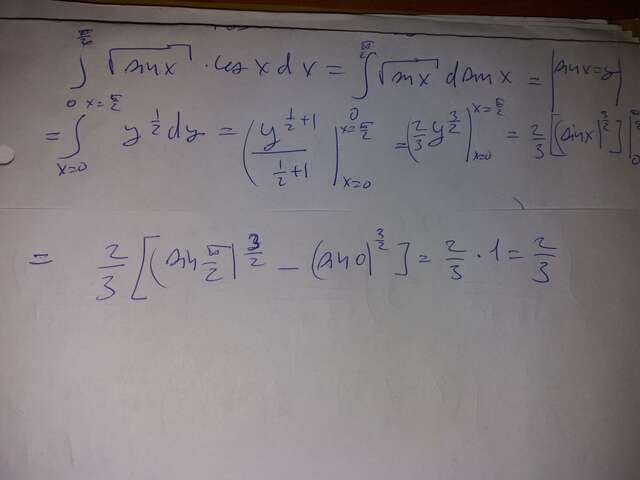 ∫_0^{π/2} √(sin x) · cos x dx = ∫_0^{π/2} √(sin x) d sin x = |sin x = y|
= ∫_{x=0}^{x=π/2} y^{1/2} dy = (y^{1/2+1}/(1/2+1) |_{x=0}^{x=π/2} = (2/3 y^{3/2} |_{x=0}^{x=π/2} = 2/3 [(sin x)^{3/2}] |_0^{π/2}
= 2/3 [(sin π/2)^{3/2} - (sin 0)^{3/2}] = 2/3 · 1 = 2/3